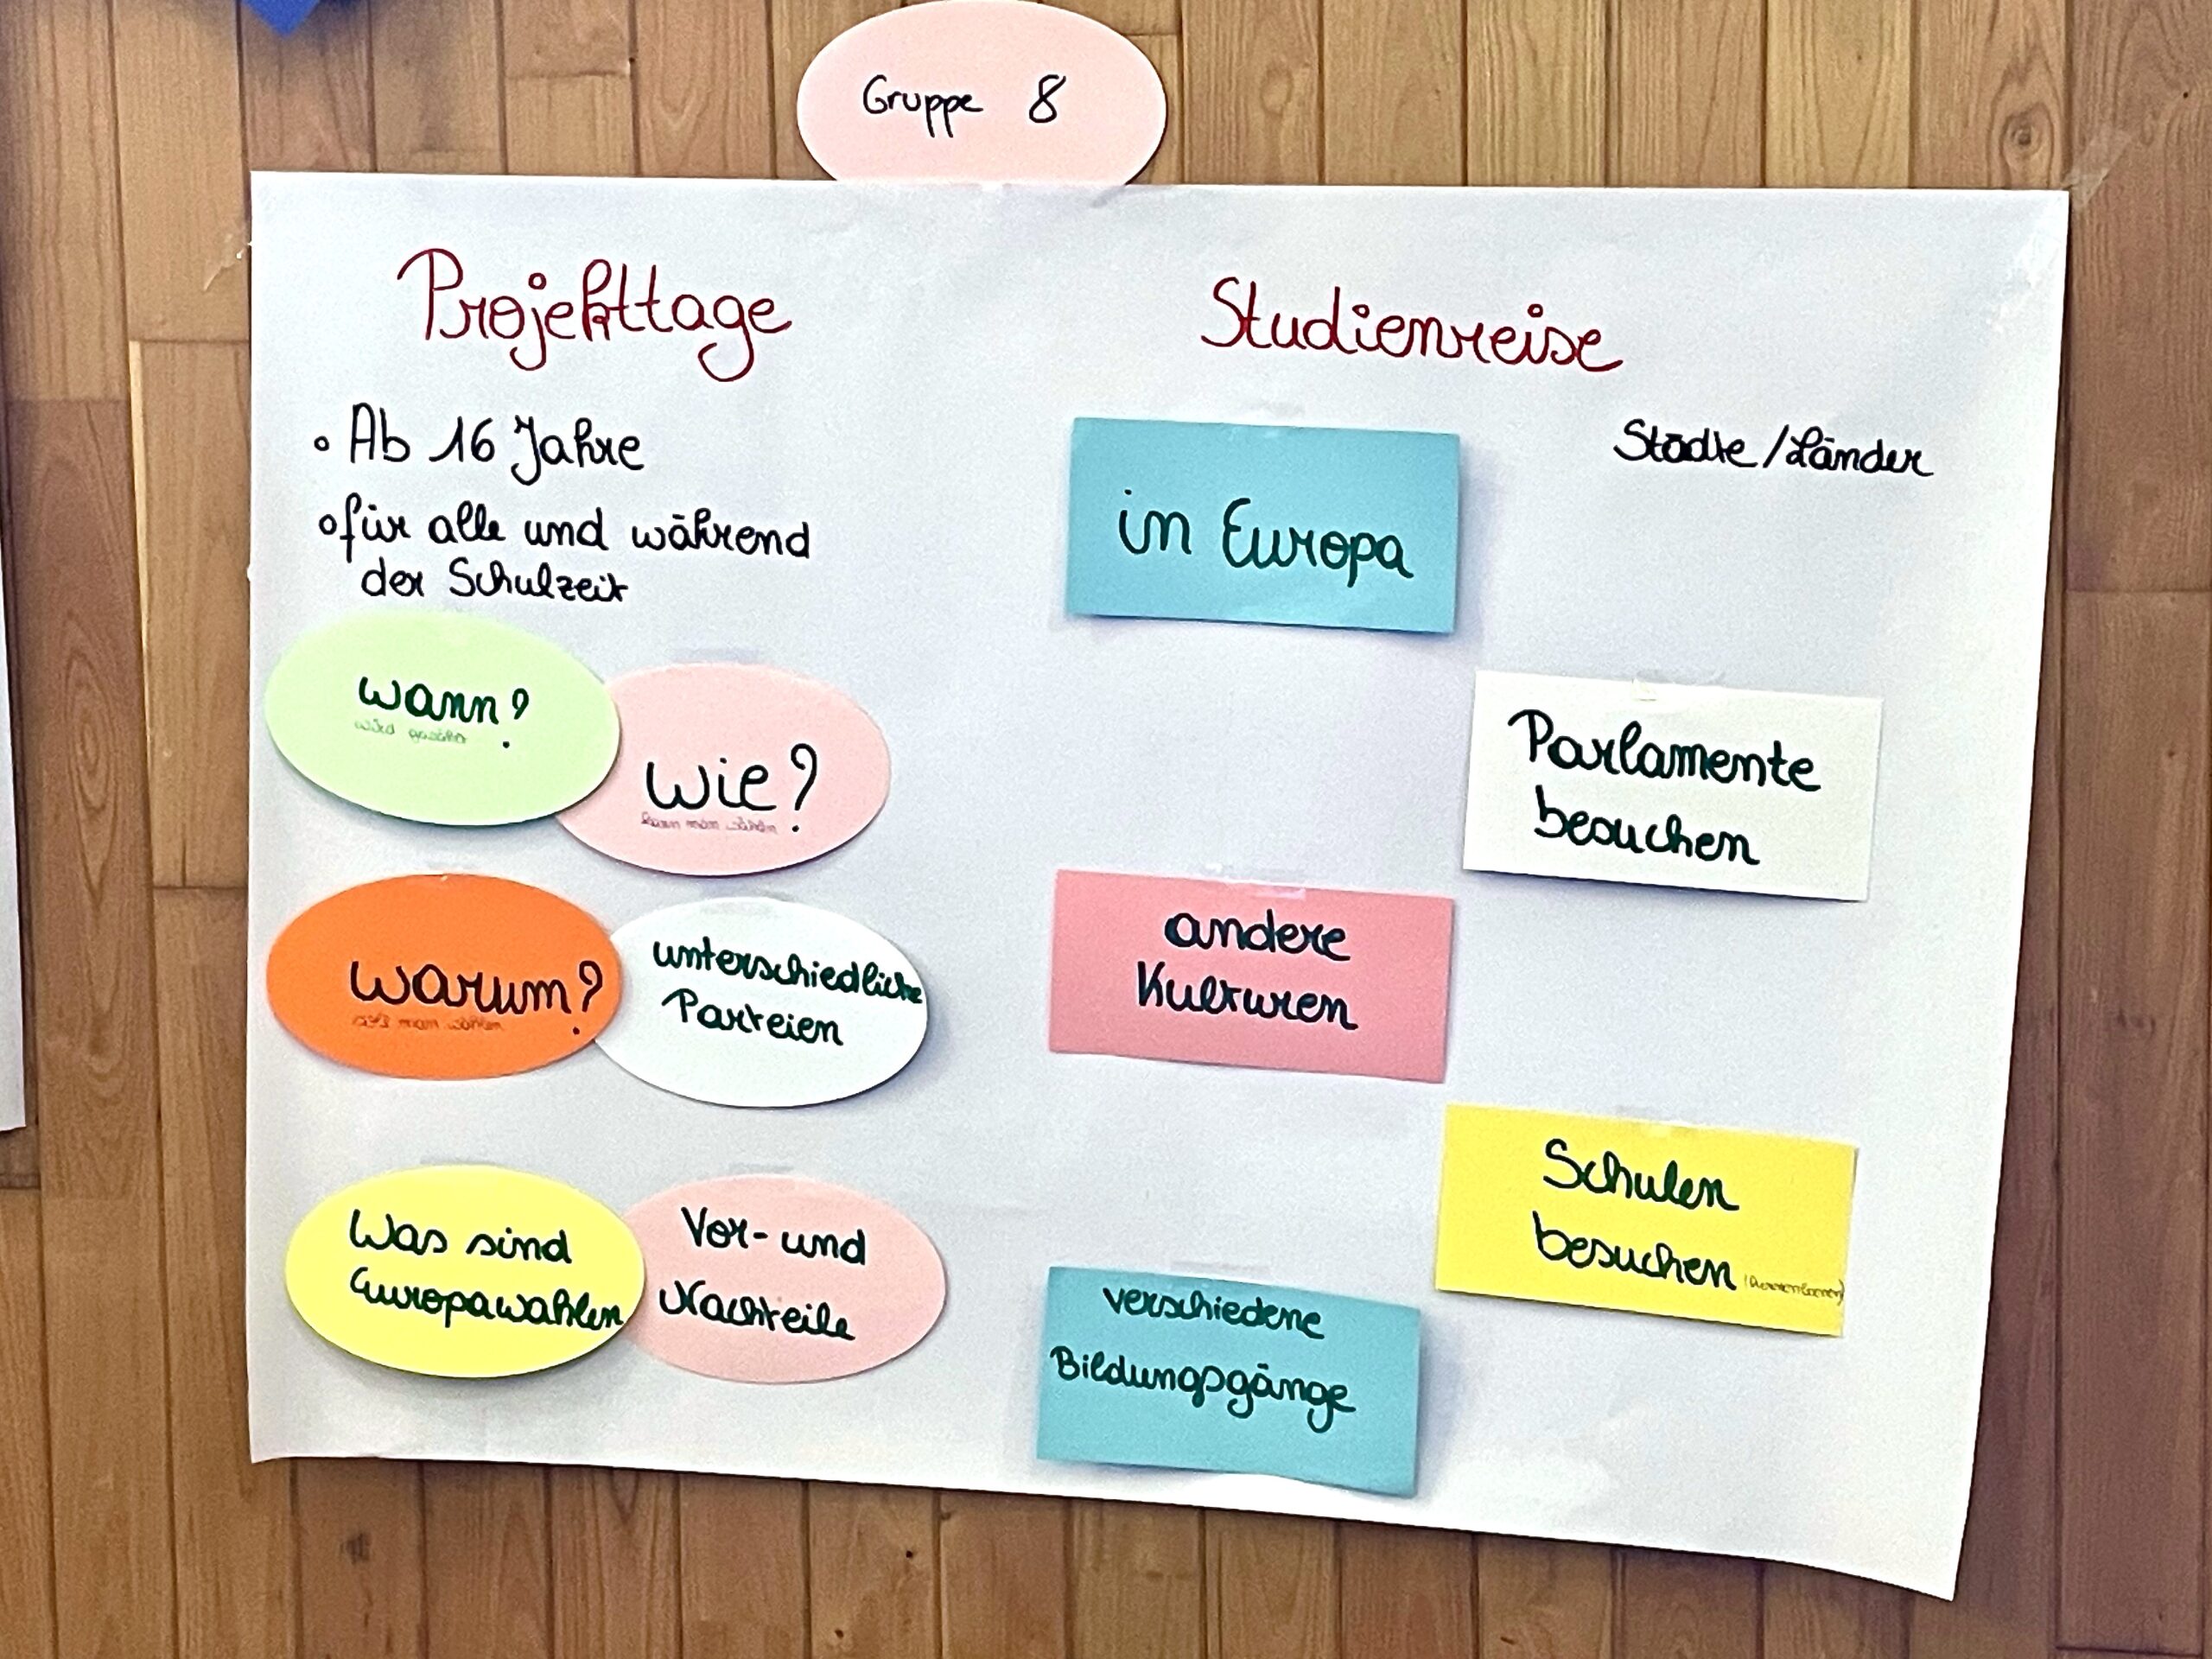 Gruppe 8
Projekttage
Ab 16 Jahre
für alle und während
der Schulzeit
wann?
wird gewählt
wie?
kann man wählen
warum?
man wählen
unterschiedliche
Parteien
Was sind
Europawahlen
Vor- und
Nachteile
Studienreise
Städte/Länder
in Europa
Parlamente
besuchen
andere
Kulturen
Schulen
besuchen (kennenlernen)
verschiedene
Bildungsgänge